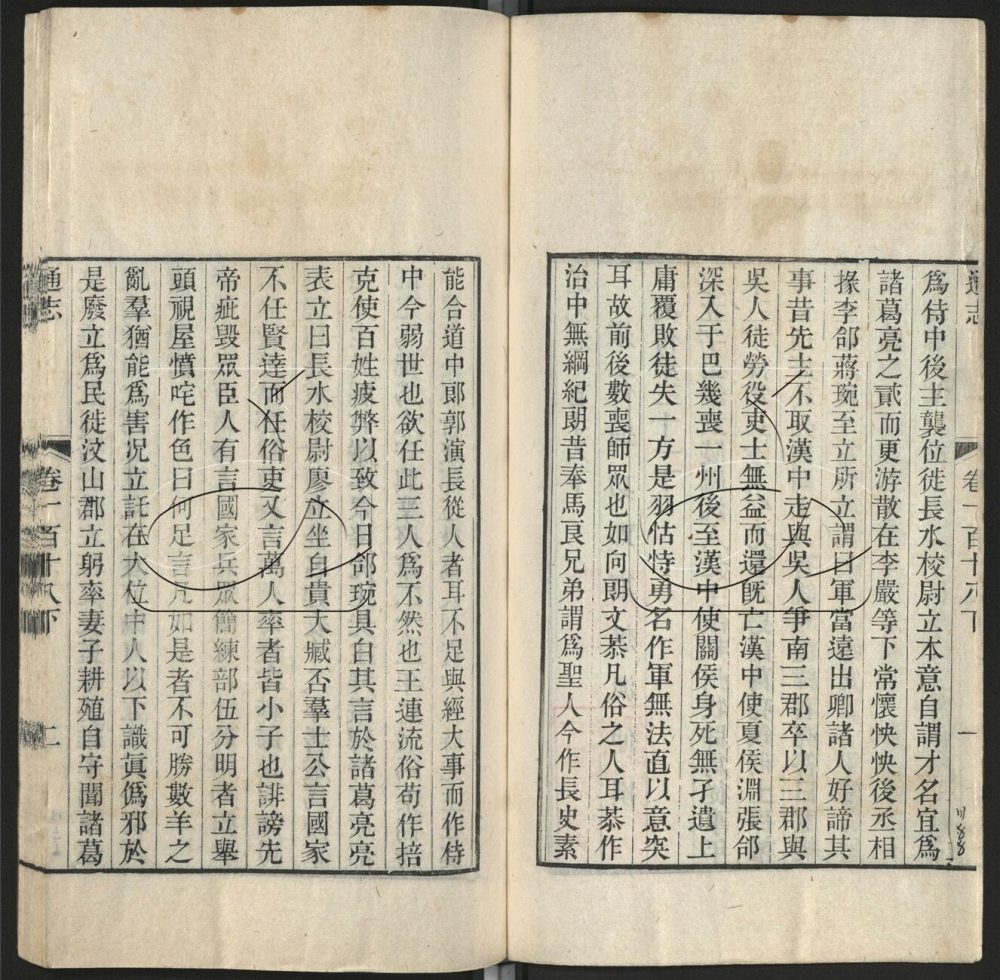 通志
卷一百十八下
一
爲侍中後主襲位徙長水校尉立本意自謂才名宜爲
諸葛亮之貳而更游散在李嚴等下常懷怏怏後丞相
掾李郃蔣琬至立所立謂曰軍當遠出卿諸人好諦其
事昔先主不取漢中走與吳人爭南三郡卒以三郡與
吳人徒勞役吏士無益而還旣亡漢中使夏侯淵張郃
深入于巴幾喪一州後至漢中使關侯身死無孑遺上
庸覆敗徒失一方是羽怙恃勇名作軍無法直以意突
耳故前後數喪師眾也如向朗文恭凡俗之人耳恭作
治中無綱紀朗昔奉馬良兄弟謂爲聖人今作長史素
能合道中郎郭演長從人者耳不足與經大事而作侍
中今弱世也欲任此三人爲不然也王連流俗苟作掊
克使百姓疲弊以致今日郃琬具白其言於諸葛亮亮
表立曰長水校尉廖立坐自貴大臧否羣士公言國家
不任賢達而任俗吏又言萬人率者皆小子也誹謗先
帝疵毀眾臣人有言國家兵眾簡練部伍分明者立舉
頭視屋憤咤作色曰何足言凡如是者不可勝數羊之
亂羣猶能爲害况立託在大位中人以下識眞僞邪於
是廢立爲民徙汶山郡立躬率妻子耕殖自守聞諸葛
通志
卷一百十八下
二